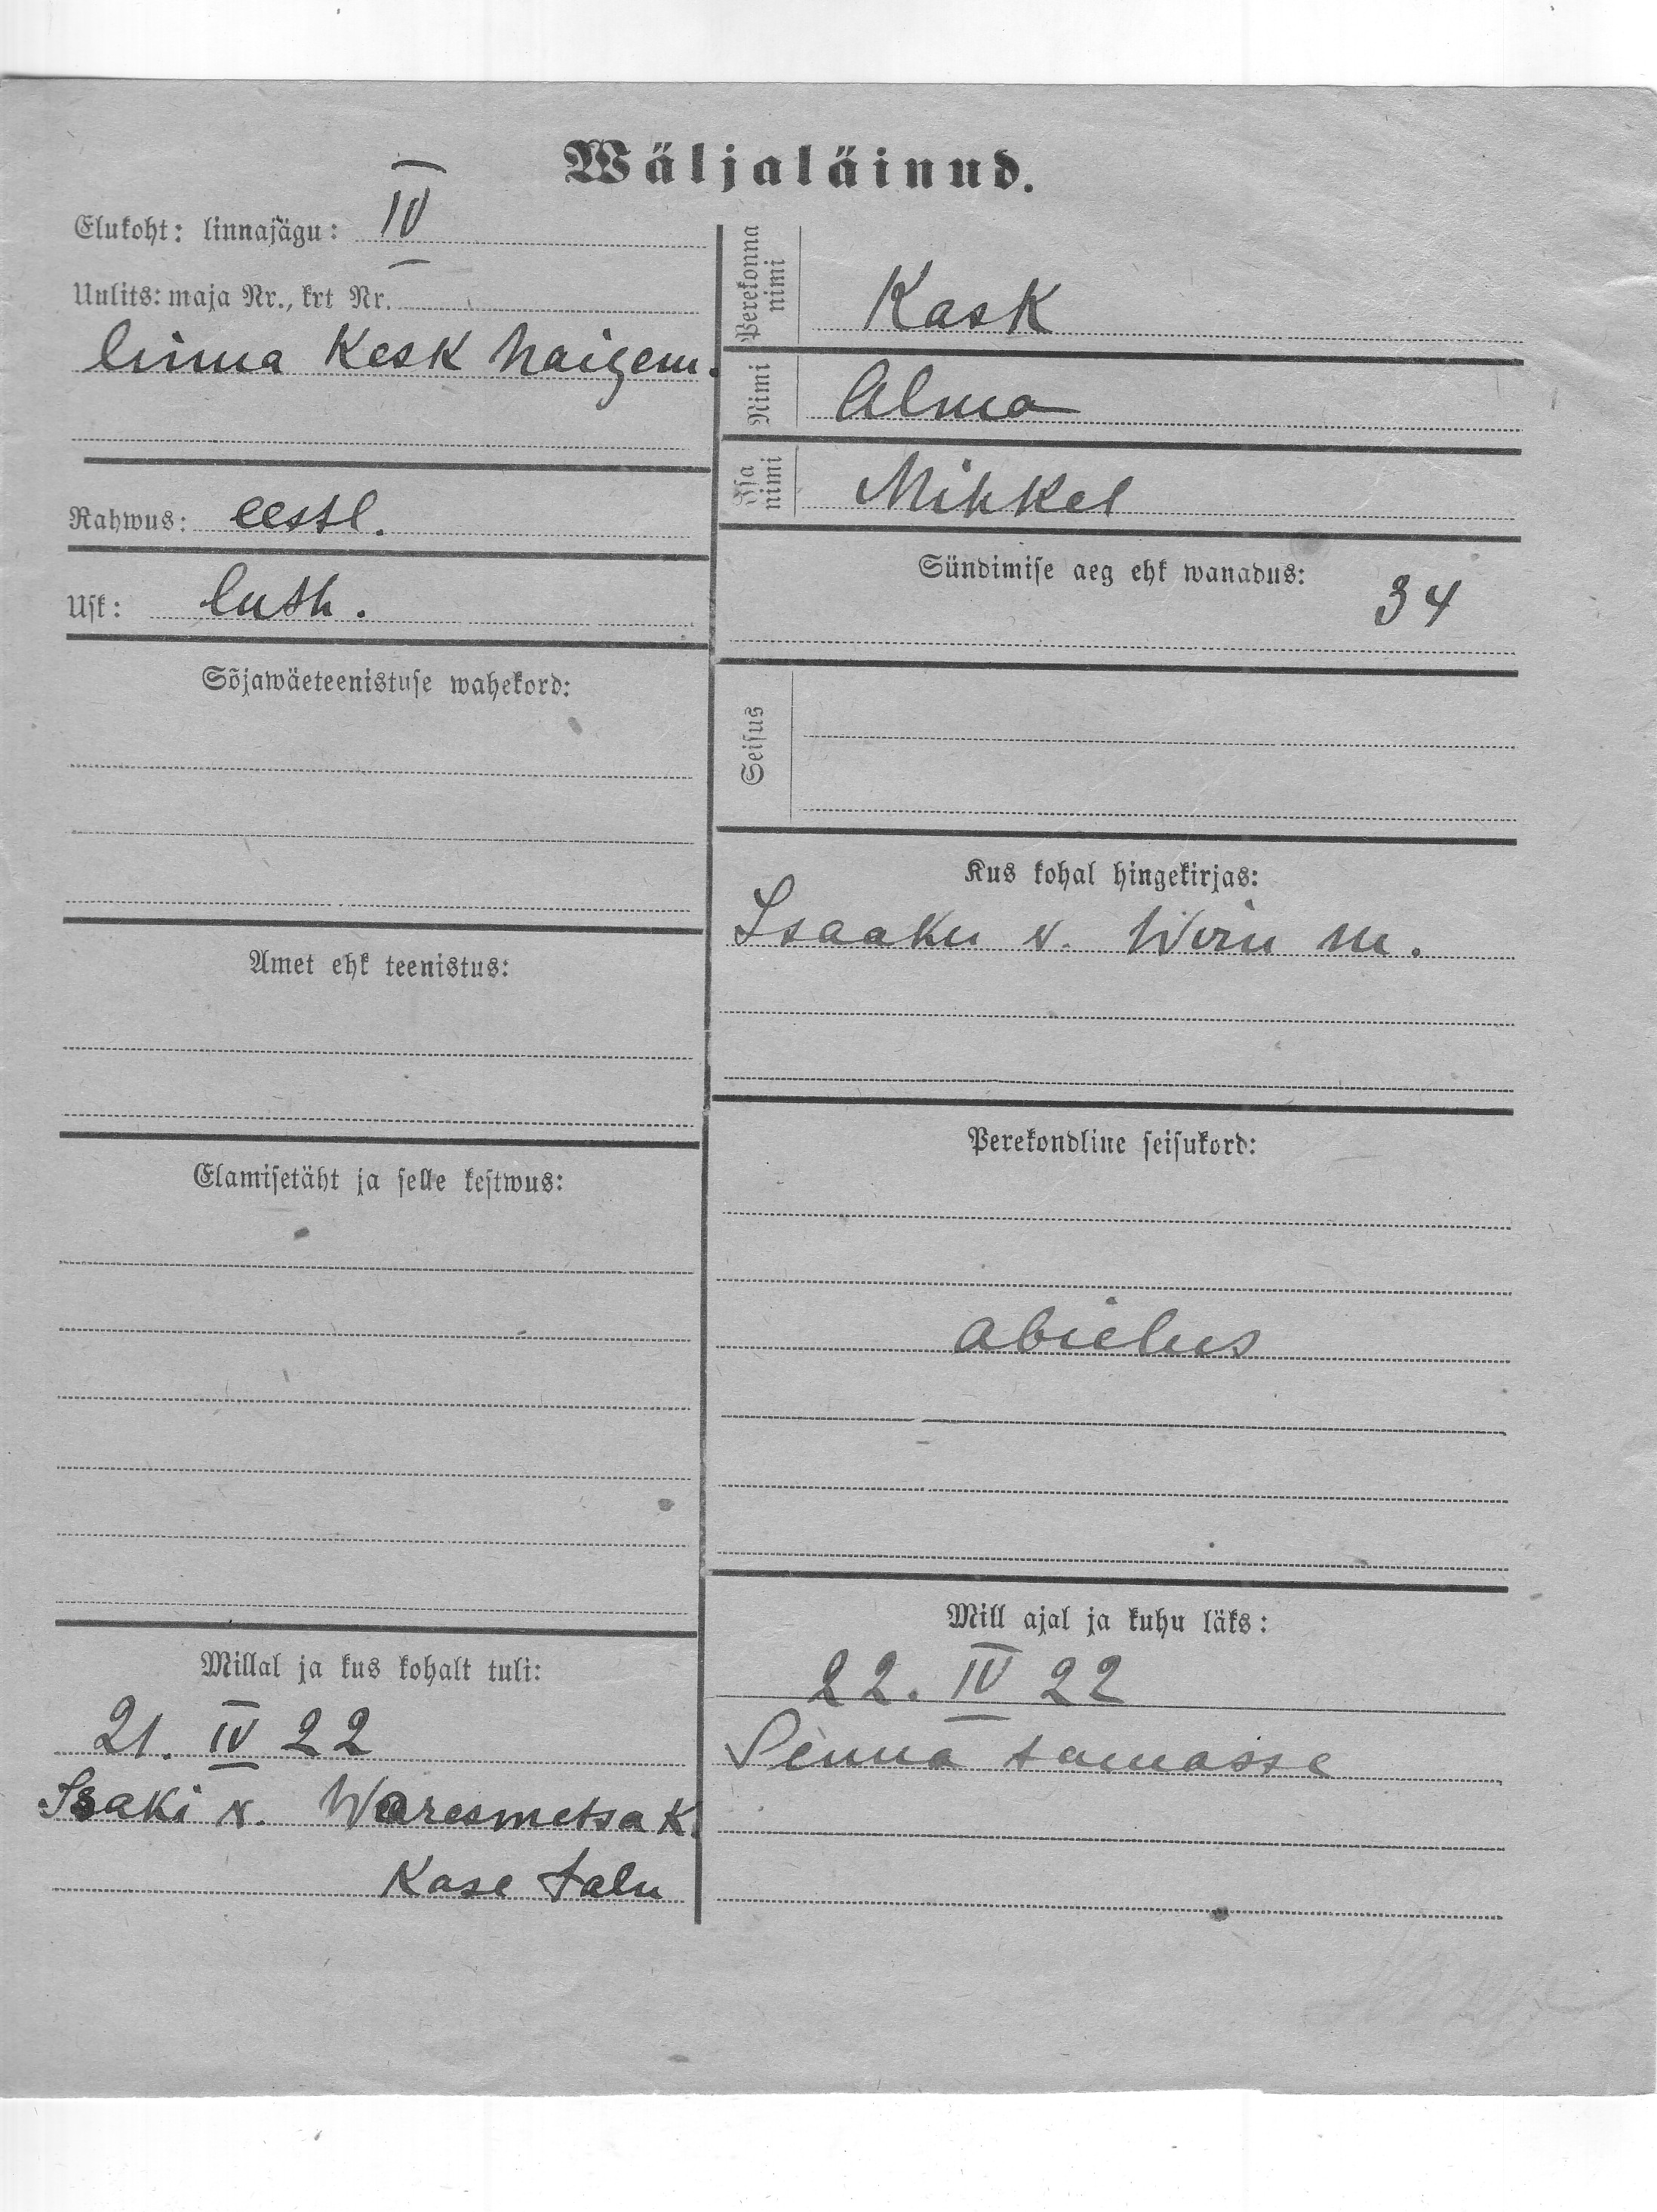 Wäljaläinud.
Elukoht: linnajägu: IV
Uulits: maja Nr., krt Nr.
linna Kesk haigem.
Rahwus: eestl.
Usk: luth.
Sõjawäeteenistuse wahekord:
Amet ehk teenistus:
Elamisetäht ja selle kestwus:
Millal ja kus kohalt tuli:
21. IV 22
Isaki v. Waresmetsa K.
Kase talu
Perekonna nimi Kask
Nimi Alma
Isa nimi Mihkel
Sündimise aeg ehk wanadus:
34
Seisus
Kus kohal hingekirjas:
Isaaku v. Wiru m.
Perekondline seisukord:
abielus
Mill ajal ja kuhu läks:
22. IV 22
Sinna samasse